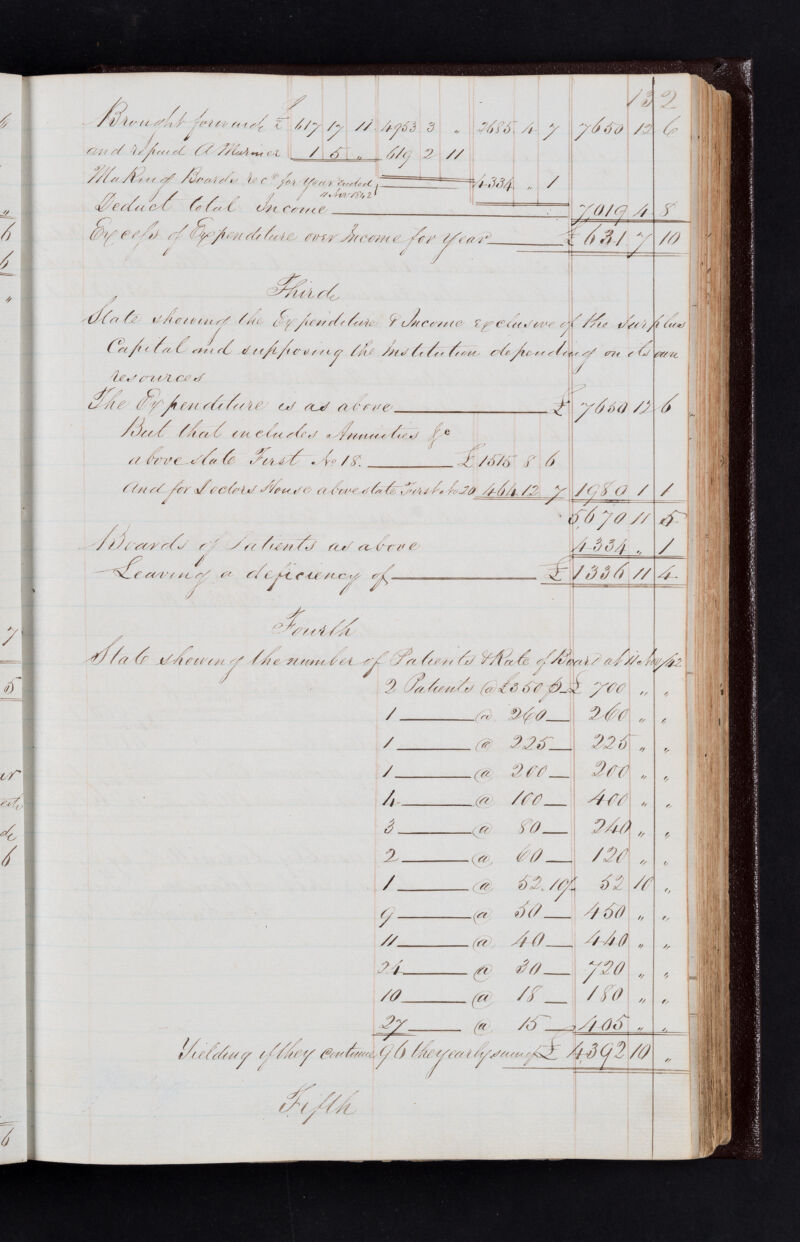 132
Brought forward £ 617 17 11 4953 3 " 2685 4 7 7650 12 6
and repaid A Mariner 1 5 " 619 2 11
Making Boards recd for Year ended 11 Nov 1842 4334 " 1
Deduct total Income 7,019 4 8
Excess of Expenditure over Income for Year £ 631 7 10
Third
State shewing the Expenditure & Income exclusive of the Surplus
Capital and supposing the Institution depending on its own
resources
The Expenditure is as above £ 7650 12 6
But that includes Annuities &c
above state First No 18. £ 1515 8 6
And for Doctors House above state First No 20 464 12 7 1980 1 1
5,670 11 5
Boards of Patients as above 4334 " 1
Leaving a deficiency of £ 1336 11 4
Fourth
State shewing the number of Patients & Rate of Board at 11 Nov/42
2 Patients @ £350 p £ 700 " "
1 @ 260 260 " "
1 @ 225 225 " "
1 @ 200 200 " "
4 @ 100 400 " "
3 @ 80 240 " "
2 @ 60 120 " "
1 @ 52.10/- 52 10 "
9 @ 50 450 " "
11 @ 40 440 " "
24 @ 30 720 " "
10 @ 18 180 " "
27 @ 15 405 " "
Yielding if they continue 96 the yearly sum of £ 4,392 10 "
Fifth